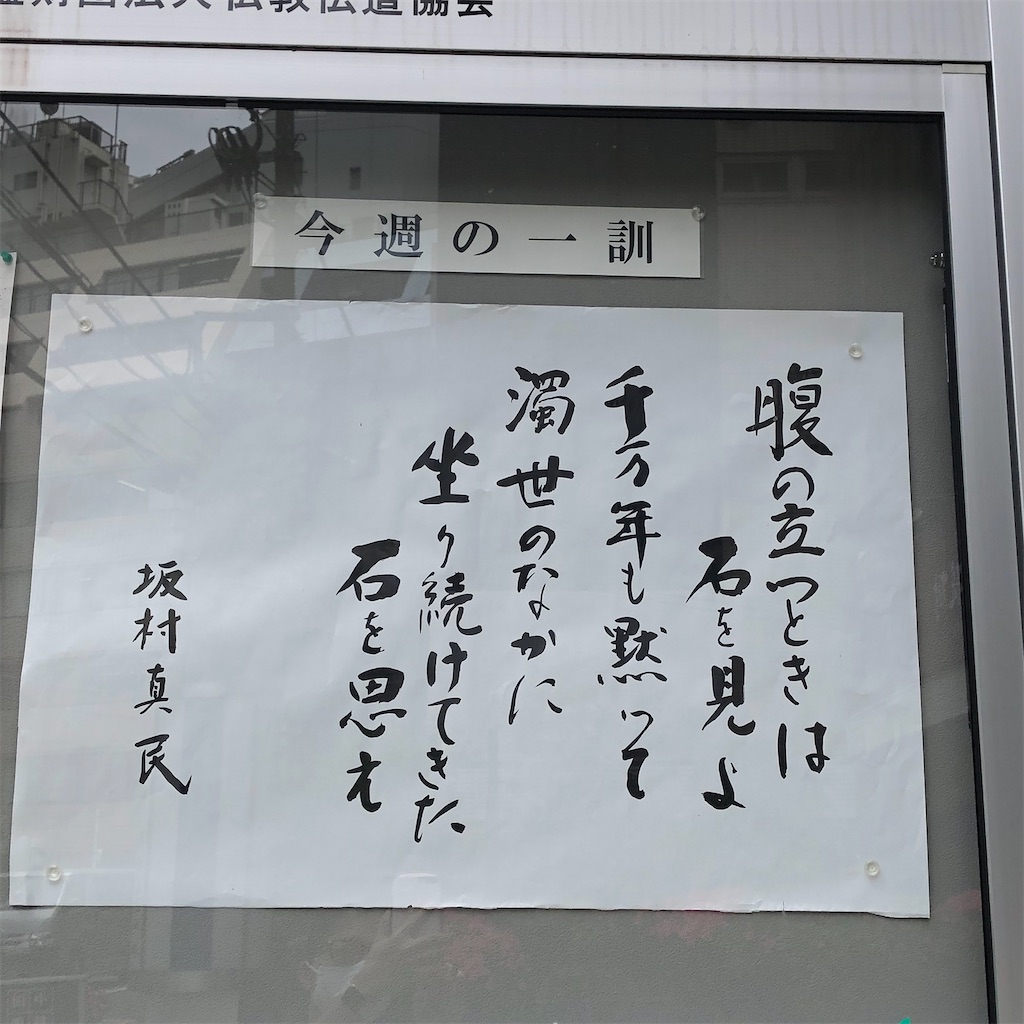 財団法人仏教伝道協会
今週の一訓
腹の立つときは
石を見よ
千万年も黙って
濁世のなかに
坐り続けてきた
石を思え
坂村真民